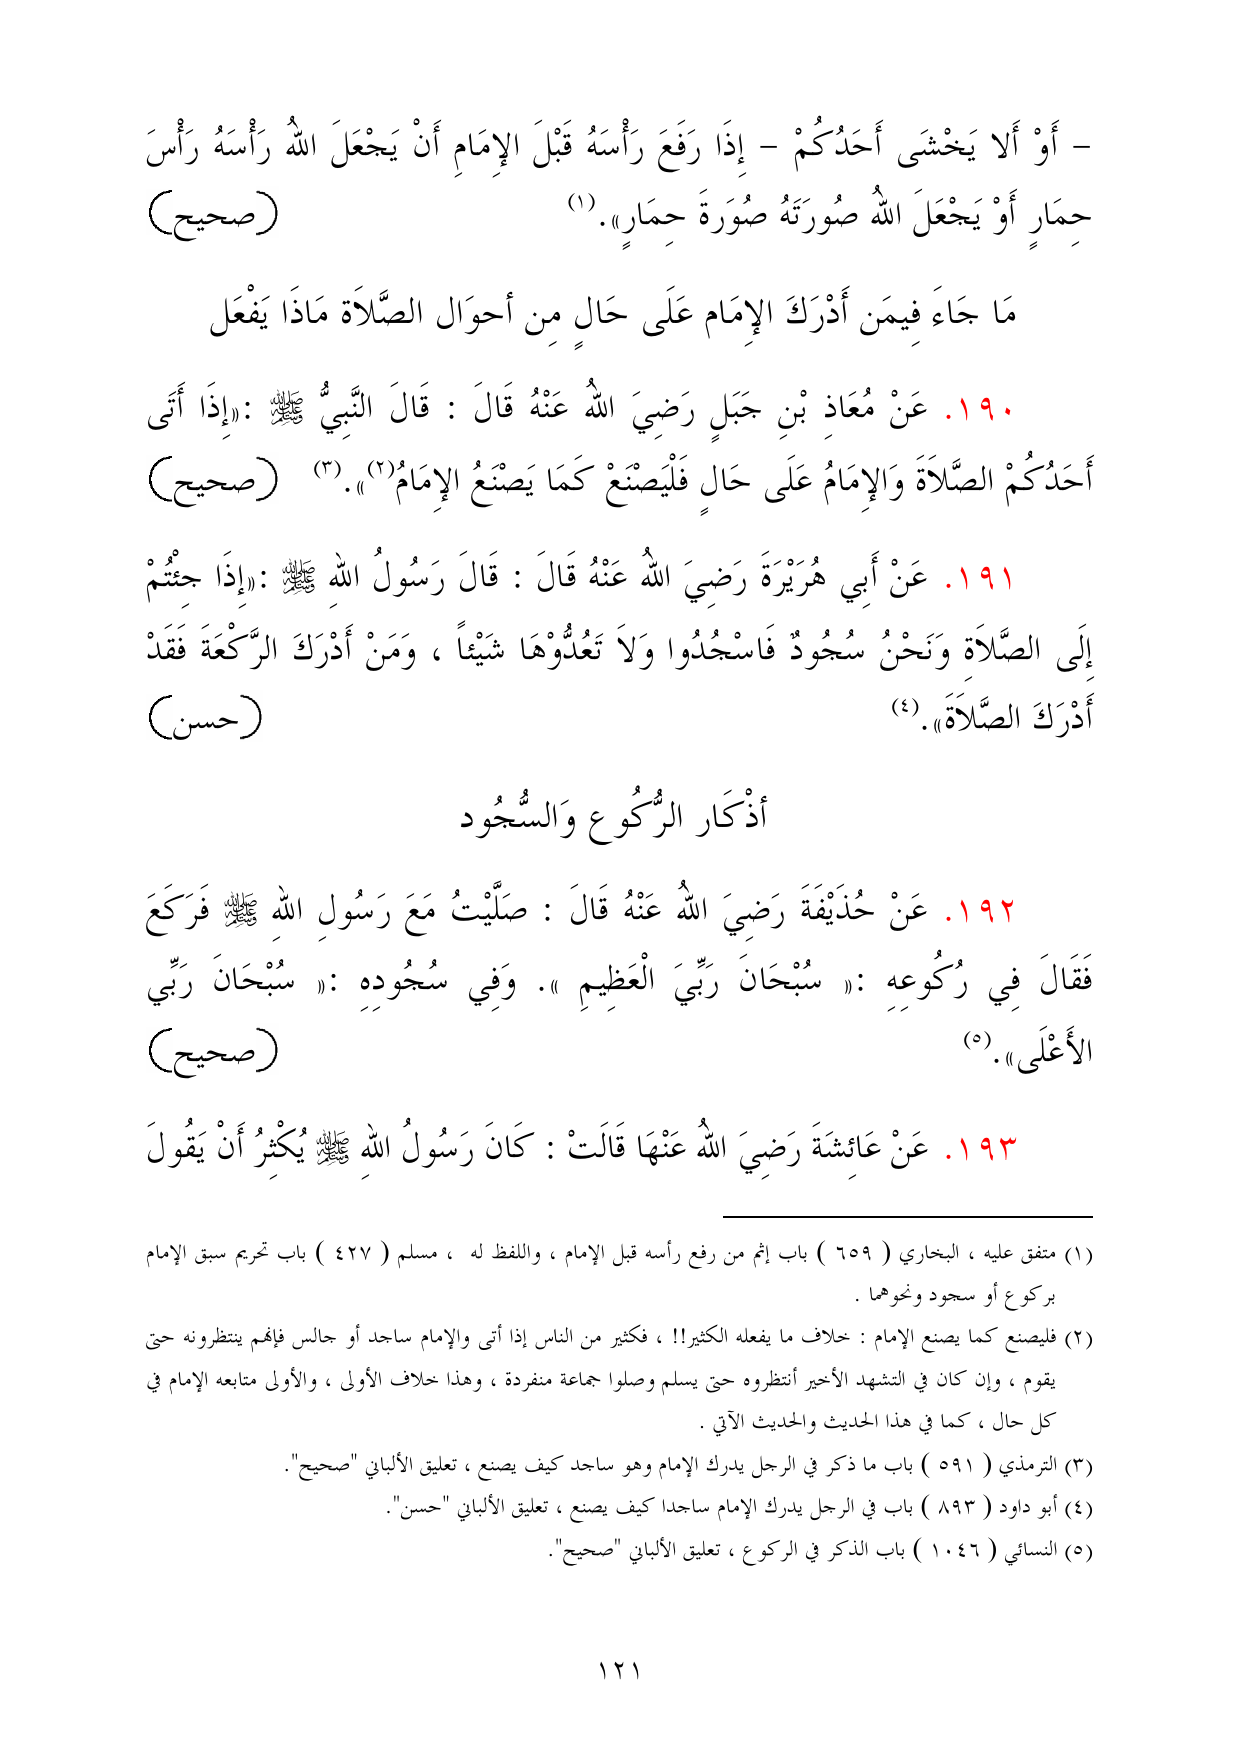 – أَوْ أَلا يَخْشَى أَحَدُكُمْ – إِذَا رَفَعَ رَأْسَهُ قَبْلَ الإِمَامِ أَنْ يَجْعَلَ اللهُ رَأْسَهُ رَأْسَ
حِمَارٍ أَوْ يَجْعَلَ اللهُ صُورَتَهُ صُورَةَ حِمَارٍ».(١) (صحيح)
مَا جَاءَ فِيمَن أَدْرَكَ الإِمَام عَلَى حَالٍ مِن أحوَال الصَّلاَة مَاذَا يَفْعَل
١٩٠. عَنْ مُعَاذِ بْنِ جَبَلٍ رَضِيَ اللهُ عَنْهُ قَالَ : قَالَ النَّبِيُّ ﷺ :«إِذَا أَتَى
أَحَدُكُمْ الصَّلاَةَ وَالإِمَامُ عَلَى حَالٍ فَلْيَصْنَعْ كَمَا يَصْنَعُ الإِمَامُ(٢)».(٣) (صحيح)
١٩١. عَنْ أَبِي هُرَيْرَةَ رَضِيَ اللهُ عَنْهُ قَالَ : قَالَ رَسُولُ اللهِ ﷺ :«إِذَا جِئْتُمْ
إِلَى الصَّلاَةِ وَنَحْنُ سُجُودٌ فَاسْجُدُوا وَلاَ تَعُدُّوْهَا شَيْئاً ، وَمَنْ أَدْرَكَ الرَّكْعَةَ فَقَدْ
أَدْرَكَ الصَّلاَةَ».(٤) (حسن)
أذْكَار الرُّكُوع وَالسُّجُود
١٩٢. عَنْ حُذَيْفَةَ رَضِيَ اللهُ عَنْهُ قَالَ : صَلَّيْتُ مَعَ رَسُولِ اللهِ ﷺ فَرَكَعَ
فَقَالَ فِي رُكُوعِهِ :« سُبْحَانَ رَبِّيَ الْعَظِيمِ ». وَفِي سُجُودِهِ :« سُبْحَانَ رَبِّي
الأَعْلَى».(٥) (صحيح)
١٩٣. عَنْ عَائِشَةَ رَضِيَ اللهُ عَنْهَا قَالَتْ : كَانَ رَسُولُ اللهِ ﷺ يُكْثِرُ أَنْ يَقُولَ
(١) متفق عليه ، البخاري ( ٦٥٩ ) باب إثم من رفع رأسه قبل الإمام ، واللفظ له ، مسلم ( ٤٢٧ ) باب تحريم سبق الإمام
بركوع أو سجود ونحوهما .
(٢) فليصنع كما يصنع الإمام : خلاف ما يفعله الكثير!! ، فكثير من الناس إذا أتى والإمام ساجد أو جالس فإنهم ينتظرونه حتى
يقوم ، وإن كان في التشهد الأخير أنتظروه حتى يسلم وصلوا جماعة منفردة ، وهذا خلاف الأولى ، والأولى متابعه الإمام في
كل حال ، كما في هذا الحديث والحديث الآتي .
(٣) الترمذي ( ٥٩١ ) باب ما ذكر في الرجل يدرك الإمام وهو ساجد كيف يصنع ، تعليق الألباني "صحيح".
(٤) أبو داود ( ٨٩٣ ) باب في الرجل يدرك الإمام ساجدا كيف يصنع ، تعليق الألباني "حسن".
(٥) النسائي ( ١٠٤٦ ) باب الذكر في الركوع ، تعليق الألباني "صحيح".
١٢١